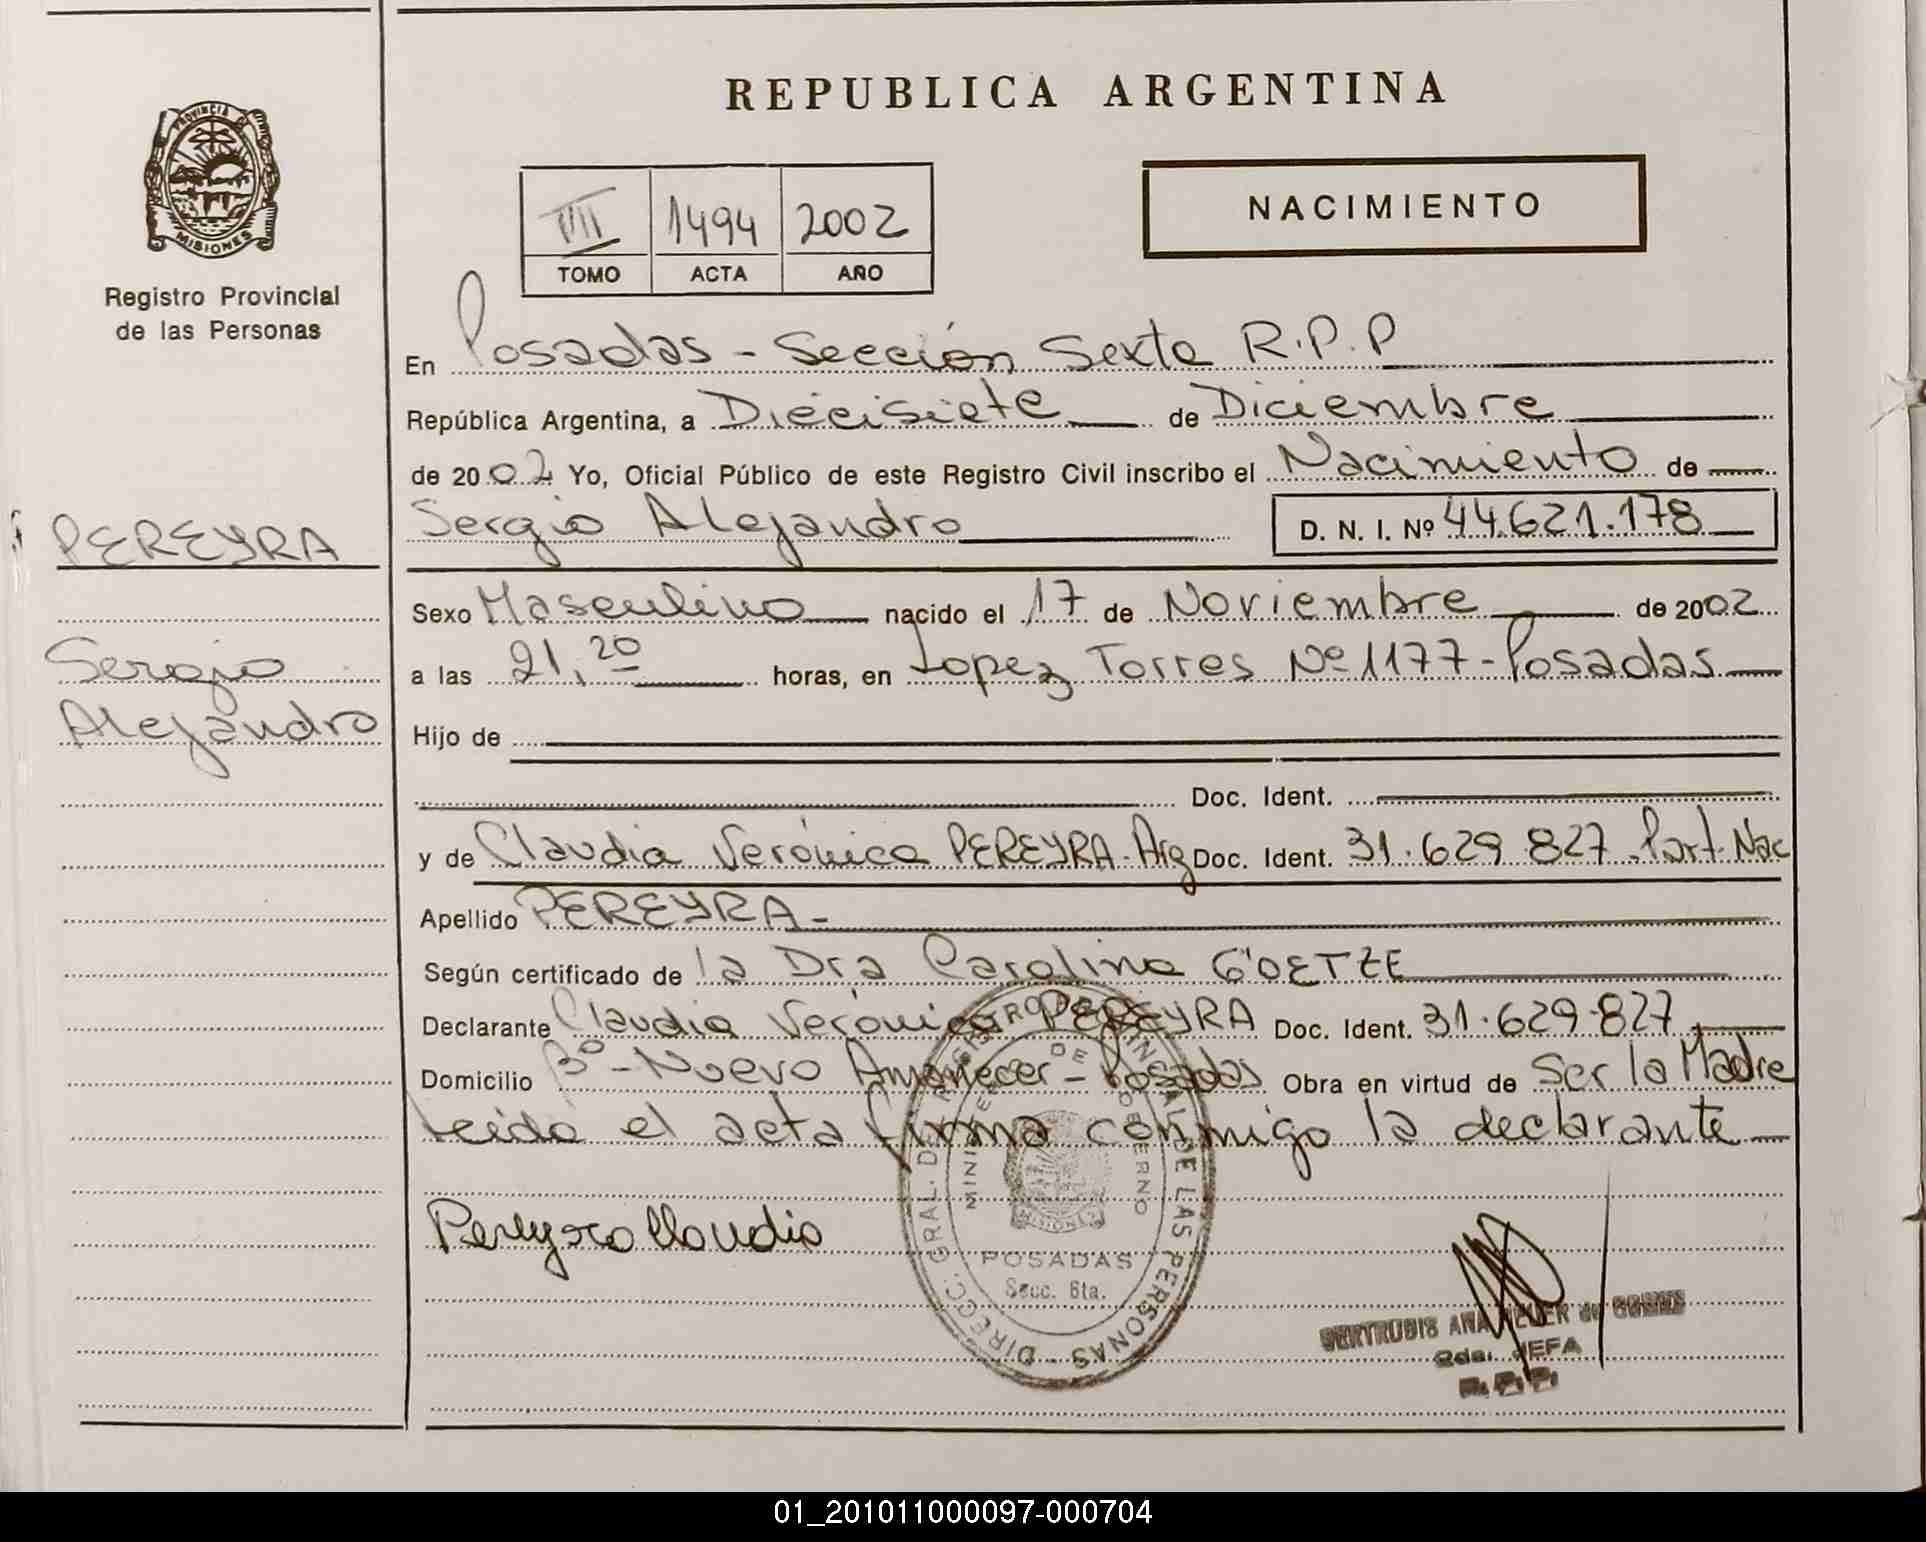 REPUBLICA ARGENTINA
PROVINCIA DE
MISIONES
Registro Provincial
de las Personas
NACIMIENTO
VII 1494 2002
TOMO ACTA AÑO
En Posadas - Sección Sexta R.P.P
República Argentina, a Diecisiete de Diciembre
de 2002 Yo, Oficial Público de este Registro Civil inscribo el Nacimiento de
Sergio Alejandro D. N. I. Nº 44.621.178
PEREYRA
Sergio
Alejandro
Sexo Masculino nacido el 17 de Noviembre de 2002
a las 21,20 horas, en Lopez Torres Nº 1177 - Posadas
Hijo de
Doc. Ident.
y de Claudia Verónica PEREYRA - Arg Doc. Ident. 31.629.827 Part. Nac
Apellido PEREYRA -
Según certificado de la Dra Carolina GOETZE
Declarante Claudia Verónica PEREYRA Doc. Ident. 31.629.827
Domicilio Bº - Nuevo Amanecer - Posadas Obra en virtud de Ser la Madre
Leida el acta firma conmigo la declarante
Pereyra Claudia
DIRECC. GRAL. DEL REGISTRO PROVINCIAL DE LAS PERSONAS
MINISTERIO DE GOBIERNO
MISIONES
POSADAS
Secc. 6ta.
GERTRUDIS ANA
JEFA
01_201011000097-000704